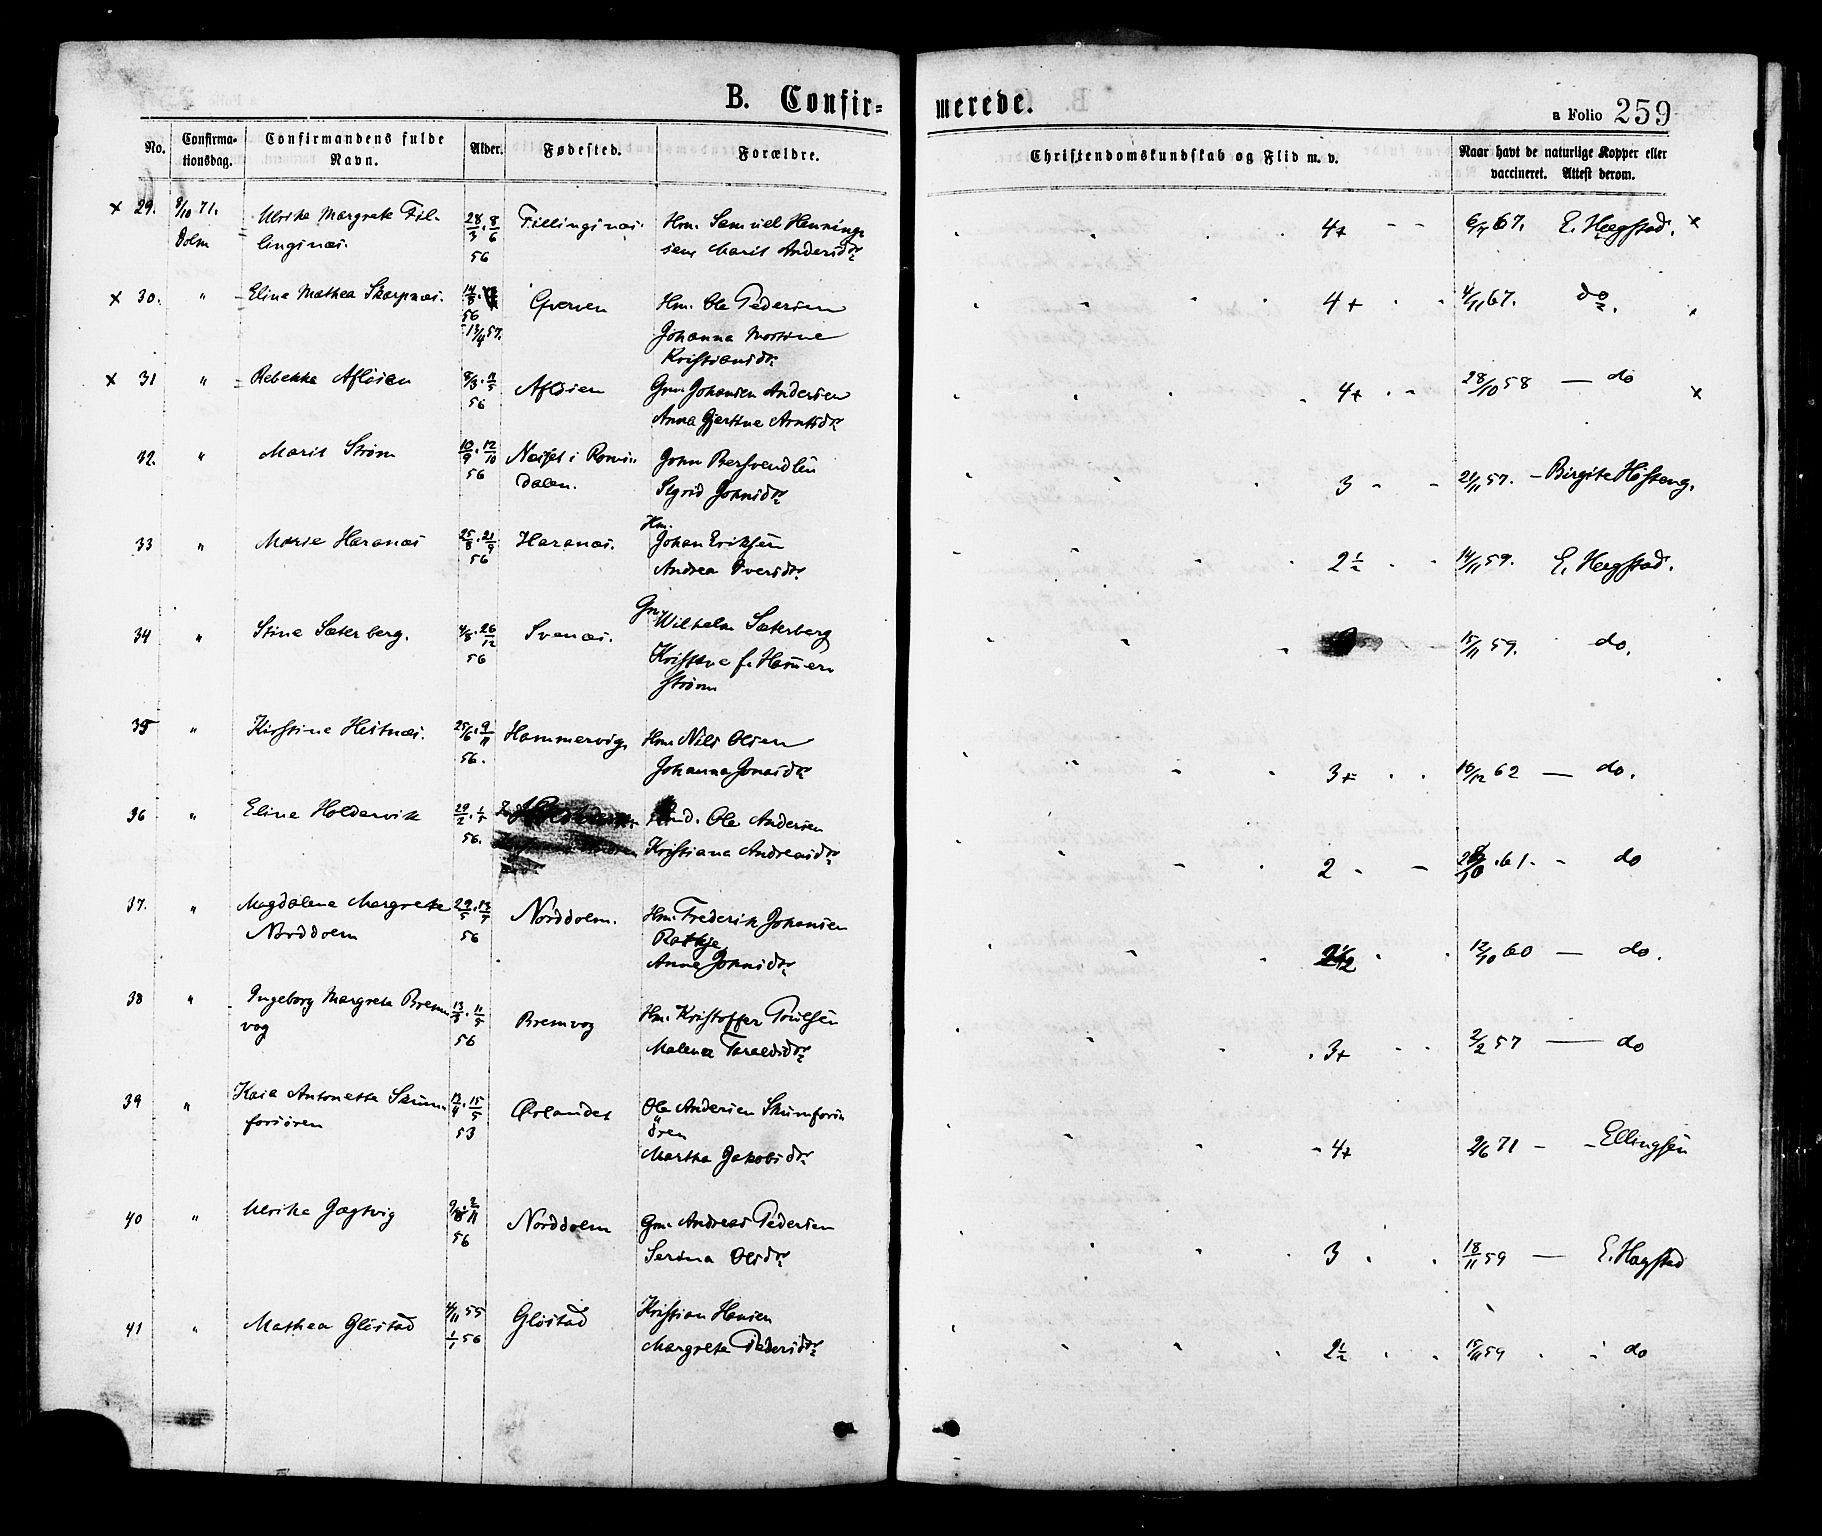 B. Confirmerede.
a Folio 259
No. Confirmationsdag. Confirmandens fulde Navn. Alder. Fødested. Forældre. Christendomskundskab og Flid m. v. Naar havt de naturlige Kopper eller vaccineret. Attest derom.
x 29. 8/10 71. Dolm Ulrike Margrete Fillingsnæs. 28/3 8/6 56 Fillingsnæs. Hm. Marit Andersdr. 4+ 67. E. Hegstad. x
x 30. " Eline Mathea Skarpnæs. 56 13/4 57. Hm. Ole Pedersen Johanna Kristiansdr. 4+ 4/11 67. do
x 31 " Rebekka Afløsen 8/3 11/5 56 Afløsen Gm. Johansen Andersen Anna Gjertine Arntsdr. 4+ 28/10 58 — do x
32. " Marit Strøm 10/9 12/10 56 Næsset i Romsdalen. John Sigrid Johnsdr. 3 57. - Birgite
33 " Marie Haranæs 25/8 21/9 56 Haranæs. Hm. Johan Eriksen Andrea Iversdr. 2½ 14/11 59. E. Hegstad.
34 " Stine Sæterberg. 4/8 26/12 56 Svenæs. Gm. Wilhelm Sæterberg f. Hammerstrøm 15/11 59. do.
35 " Kirstine Hestnæs. 25/6 9/11 56. Hammervig Hm. Nils Olsen Johanna Jonasdr. 3+ 18/12 62 — do.
36 " Eline Holdervik 29/2 56. Ole Andersen Kristiana Andreasdr. 2 61. - do
37. " Magdalena Margrete Norddolm 29/5 13/7 56 Norddolm. Hm. Frederik Johansen Rathje Anna Johnsdr. 2½ 12/10 60 — do.
38 " Ingeborg Margreta Bremvog 13/3 11/5 56 Bremvog Hm. Kristoffer Poulsen Malena Taraldsdr. 3+ 2/2 57 — do
39 " Kaia Antonetta Skumforsøren 13/4 15/5 53 Ørlandet Ole Andersen Skumforsøren Martha Jakobsdr. - 4+ 2/6 71 - - Ellingsen
40 " Ulrike Jægtvig 2/11 56 Norddolm Gm. Andreas Pedersen Serina Olsdr. 3 18/11 59 — E. Hegstad
41 " Mathea Gløstad 4/11 55 1/1 56 Gløstad Kristian Hansen Margreta Pedersdr. 2½ 15/11 59 do